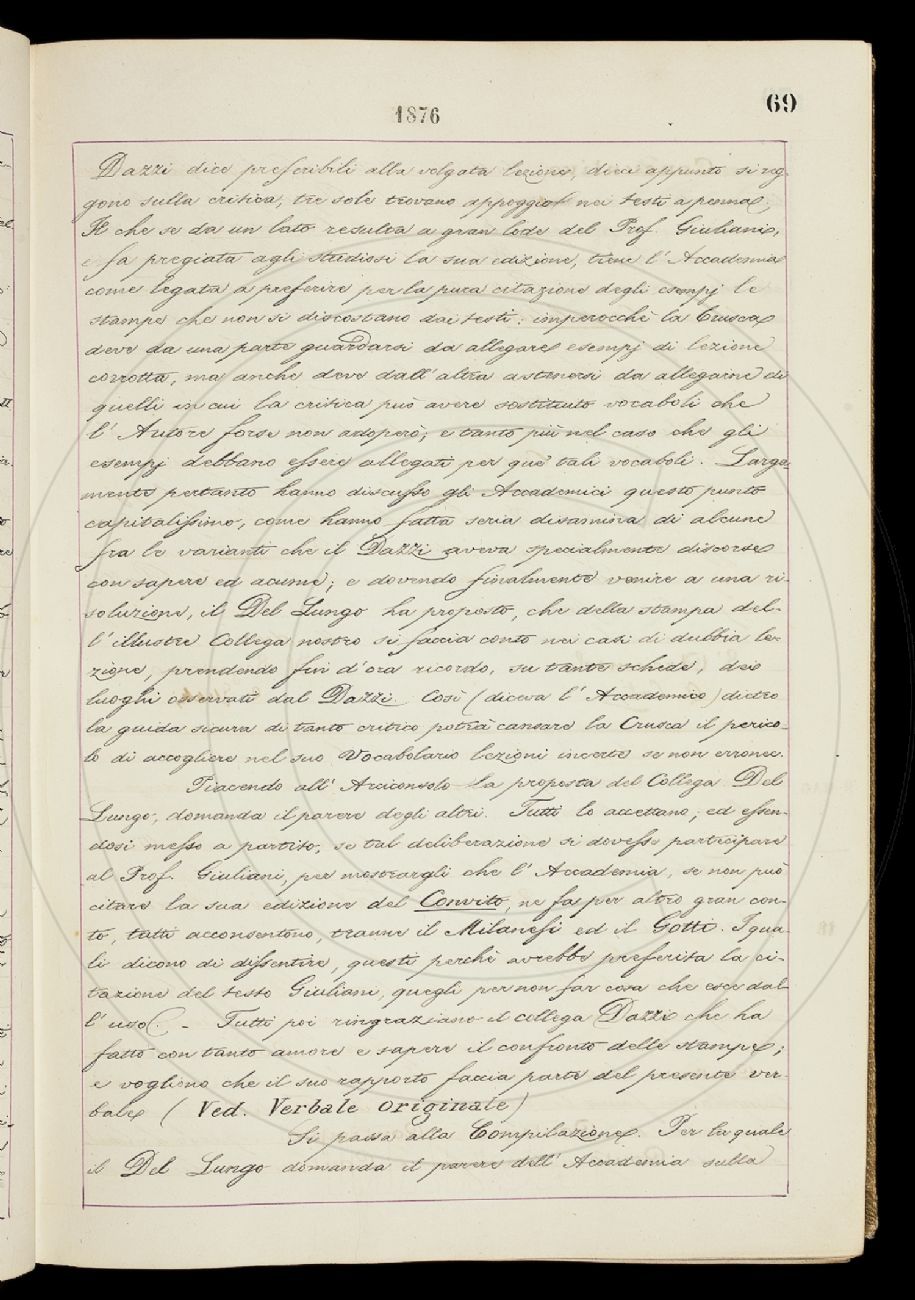 1876
69
Dazzi dice preferibili alla volgata lezione, dieci appunto si reg-
gono sulla critica, tre sole trovano appoggio nei testi a penna;
Il che se da un lato resulta a gran lode del Prof. Giuliani,
e fa pregiata agli studiosi la sua edizione, tiene l'Accademia
come legata a preferire per la pura citazione degli esempj le
stampe che non si discostano dai testi: imperocchè la Crusca
deve da una parte guardarsi da allegare esempj di lezione
corrotta, ma anche deve dall'altra astenersi da allegarne di
quelli in cui la critica può avere sostituito vocaboli che
l'Autore forse non adoperò, e tanto più nel caso che gli
esempj debbano essere allegati per que' tali vocaboli. Larga-
mente pertanto hanno discusso gli Accademici questo punto
capitalissimo, come hanno fatta seria disamina di alcune
fra le varianti che il Dazzi aveva specialmente discorse
con sapere ed acume; e dovendo finalmente venire a una ri-
soluzione, il Del Lungo ha proposto, che della stampa del-
l'illustre Collega nostro si faccia conto nei casi di dubbia le-
zione, prendendo fin d'ora ricordo, su tante schede, dei
luoghi osservati dal Dazzi. Così (diceva l'Accademico) dietro
la guida sicura di tanto critico potrà cansare la Crusca il perico-
lo di accogliere nel suo Vocabolario lezioni incerte se non erronee.
Piacendo all'Arciconsolo la proposta del Collega Del
Lungo, domanda il parere degli altri. Tutti lo accettano; ed essen-
dosi messo a partito, se tal deliberazione si dovesse participare
al Prof. Giuliani, per mostrargli che l'Accademia, se non può
citare la sua edizione del Convito, ne fa per altro gran con-
to, tutti acconsentono, tranne il Milanesi ed il Gotti. I qua-
li dicono di dissentire, questi perchè avrebbe preferita la ci-
tazione del testo Giuliani, quegli per non far cosa che esce dal-
l'uso. - Tutti poi ringraziano il collega Dazzi che ha
fatto con tanto amore e sapere il confronto delle stampe;
e vogliono che il suo rapporto faccia parte del presente ver-
bale (Ved. Verbale originale)
Si passa alla Compilazione. Per la quale
il Del Lungo domanda il parere dell'Accademia sulla